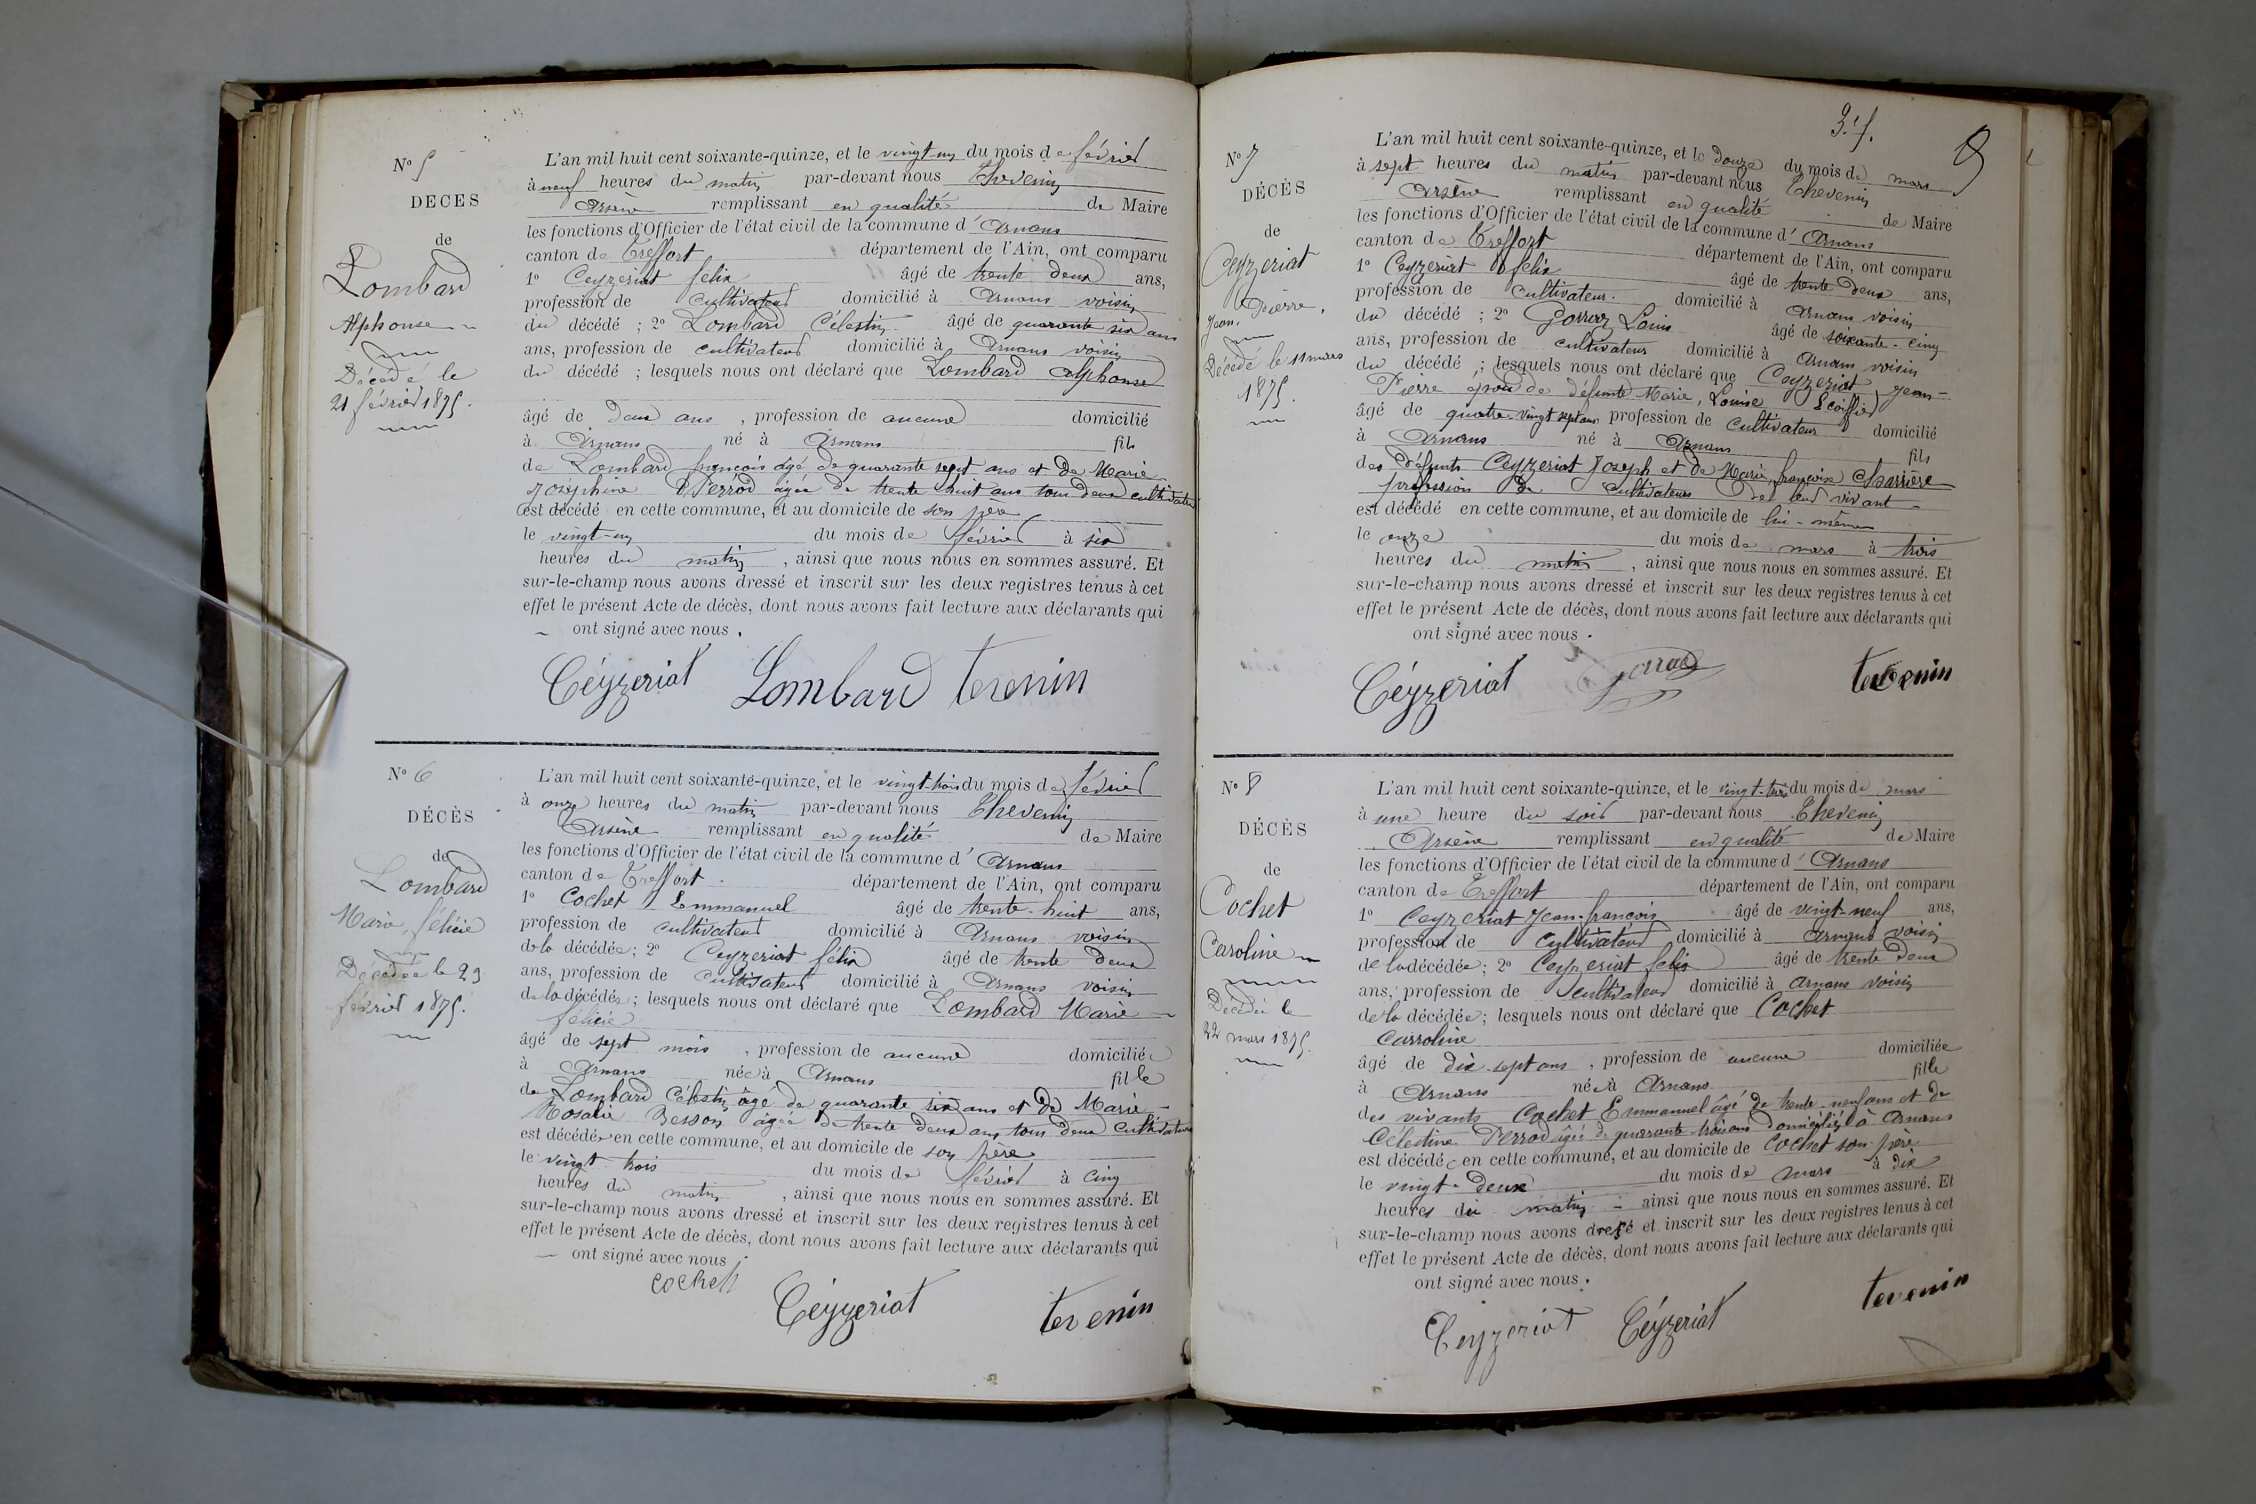 N° 5
DÉCÈS
de
Lombard
Alphonse
Décédé le
21 février 1875.
L'an mil huit cent soixante-quinze, et le vingt-un du mois de février
à neuf heures du matin par-devant nous Thevenin
Arsène remplissant en qualité de Maire
les fonctions d'Officier de l'état civil de la commune d'Arnans
canton de Treffort département de l'Ain, ont comparu
1° Ceyzeriat felix âgé de trente deux ans,
profession de cultivateur domicilié à Arnans voisin
du décédé ; 2° Lombard Célestin âgé de quarante six ans
ans, profession de cultivateur domicilié à Arnans voisin
du décédé ; lesquels nous ont déclaré que Lombard Alphonse
âgé de deux ans, profession de aucune domicilié
à Arnans né à Arnans fils
de Lombard françois âgé de quarante sept ans et de Marie
Joséphine Perrod âgée de trente huit ans tous deux cultivateurs
est décédé en cette commune, et au domicile de son père
le vingt-un du mois de février à six
heures du matin, ainsi que nous nous en sommes assuré. Et
sur-le-champ nous avons dressé et inscrit sur les deux registres tenus à cet
effet le présent Acte de décès, dont nous avons fait lecture aux déclarants qui
ont signé avec nous.
Céyzeriat Lombard tevenin
N° 6
DÉCÈS
de
Lombard
Marie, félicie
Décédée le 23
février 1875.
L'an mil huit cent soixante-quinze, et le vingt-trois du mois de février
à onze heures du matin par-devant nous Thevenin
Arsène remplissant en qualité de Maire
les fonctions d'Officier de l'état civil de la commune d'Arnans
canton de Treffort département de l'Ain, ont comparu
1° Cochet Emmanuel âgé de trente-huit ans,
profession de cultivateur domicilié à Arnans voisin
de la décédée ; 2° Ceyzeriat félix âgé de trente deux
ans, profession de cultivateur domicilié à Arnans voisin
de la décédée ; lesquels nous ont déclaré que Lombard Marie
félicie
âgé de sept mois, profession de aucune domiciliée
à Arnans née à Arnans fille
de Lombard Célestin âgé de quarante six ans et de Marie
Rosalie Besson âgée de trente deux ans tous deux cultivateurs
est décédée en cette commune, et au domicile de son père
le vingt trois du mois de février à cinq
heures du matin, ainsi que nous nous en sommes assuré. Et
sur-le-champ nous avons dressé et inscrit sur les deux registres tenus à cet
effet le présent Acte de décès, dont nous avons fait lecture aux déclarants qui
ont signé avec nous
cochet Céyzeriat tevenin
N° 7
DÉCÈS
de
Ceyzeriat
Jean, Pierre,
Décédé le 11 mars
1875.
L'an mil huit cent soixante-quinze, et le douze du mois de mars
à sept heures du matin par-devant nous Thevenin
Arsène remplissant en qualité de Maire
les fonctions d'Officier de l'état civil de la commune d'Arnans
canton de Treffort département de l'Ain, ont comparu
1° Ceyzeriat felix âgé de trente deux ans,
profession de cultivateur. domicilié à Arnans voisin
du décédé ; 2° Louis âgé de soixante-cinq
ans, profession de cultivateur domicilié à Arnans voisin
du décédé ; lesquels nous ont déclaré que Ceyzeriat Jean-
Pierre époux de défunte Marie, Louise
âgé de quatre-vingt sept ans profession de cultivateur domicilié
à Arnans né à Arnans fils
des défunts Ceyzeriat Joseph et de Marie, françoise
profession de cultivateurs de leur vivant
est décédé en cette commune, et au domicile de lui-même
le onze du mois de mars à trois
heures du matin, ainsi que nous nous en sommes assuré. Et
sur-le-champ nous avons dressé et inscrit sur les deux registres tenus à cet
effet le présent Acte de décès, dont nous avons fait lecture aux déclarants qui
ont signé avec nous.
Céyzeriat tevenin
N° 8
DÉCÈS
de
Cochet
Caroline
Décédée le
22 mars 1875.
L'an mil huit cent soixante-quinze, et le vingt-trois du mois de mars
à une heure du soir par-devant nous Thevenin
Arsène remplissant en qualité de Maire
les fonctions d'Officier de l'état civil de la commune d'Arnans
canton de Treffort département de l'Ain, ont comparu
1° Ceyzeriat Jean-françois âgé de vingt-neuf ans,
profession de cultivateur domicilié à Arnans voisin
de la décédée ; 2° Ceyzeriat felix âgé de trente deux
ans, profession de cultivateur domicilié à Arnans voisin
de la décédée ; lesquels nous ont déclaré que Cochet
Carroline
âgé de dix-sept ans, profession de aucune domiciliée
à Arnans née à Arnans fille
des vivants Cochet Emmanuel âgé de trente-neuf ans et de
Célestine Perrod âgée de quarante-trois ans domiciliés à Arnans
est décédée en cette commune, et au domicile de Cochet son père
le vingt-deux du mois de mars à dix
heures du matin ainsi que nous nous en sommes assuré. Et
sur-le-champ nous avons dressé et inscrit sur les deux registres tenus à cet
effet le présent Acte de décès, dont nous avons fait lecture aux déclarants qui
ont signé avec nous.
Ceyzeriat Céyzeriat tevenin